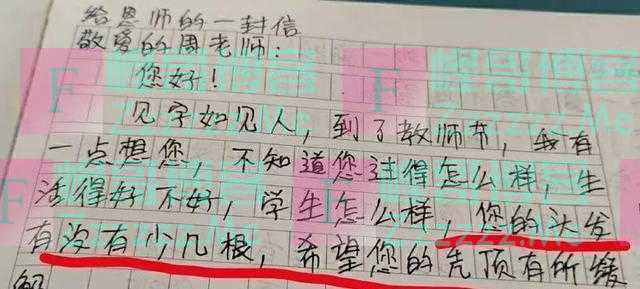 给恩师的一封信
敬爱的周老师:
您好!
见字如见人,到了教师节,我有
一点想您,不知道您过得怎么样,生
活得好不好,学生怎么样,您的头发
有没有少几根,希望您的秃顶有所缓
解